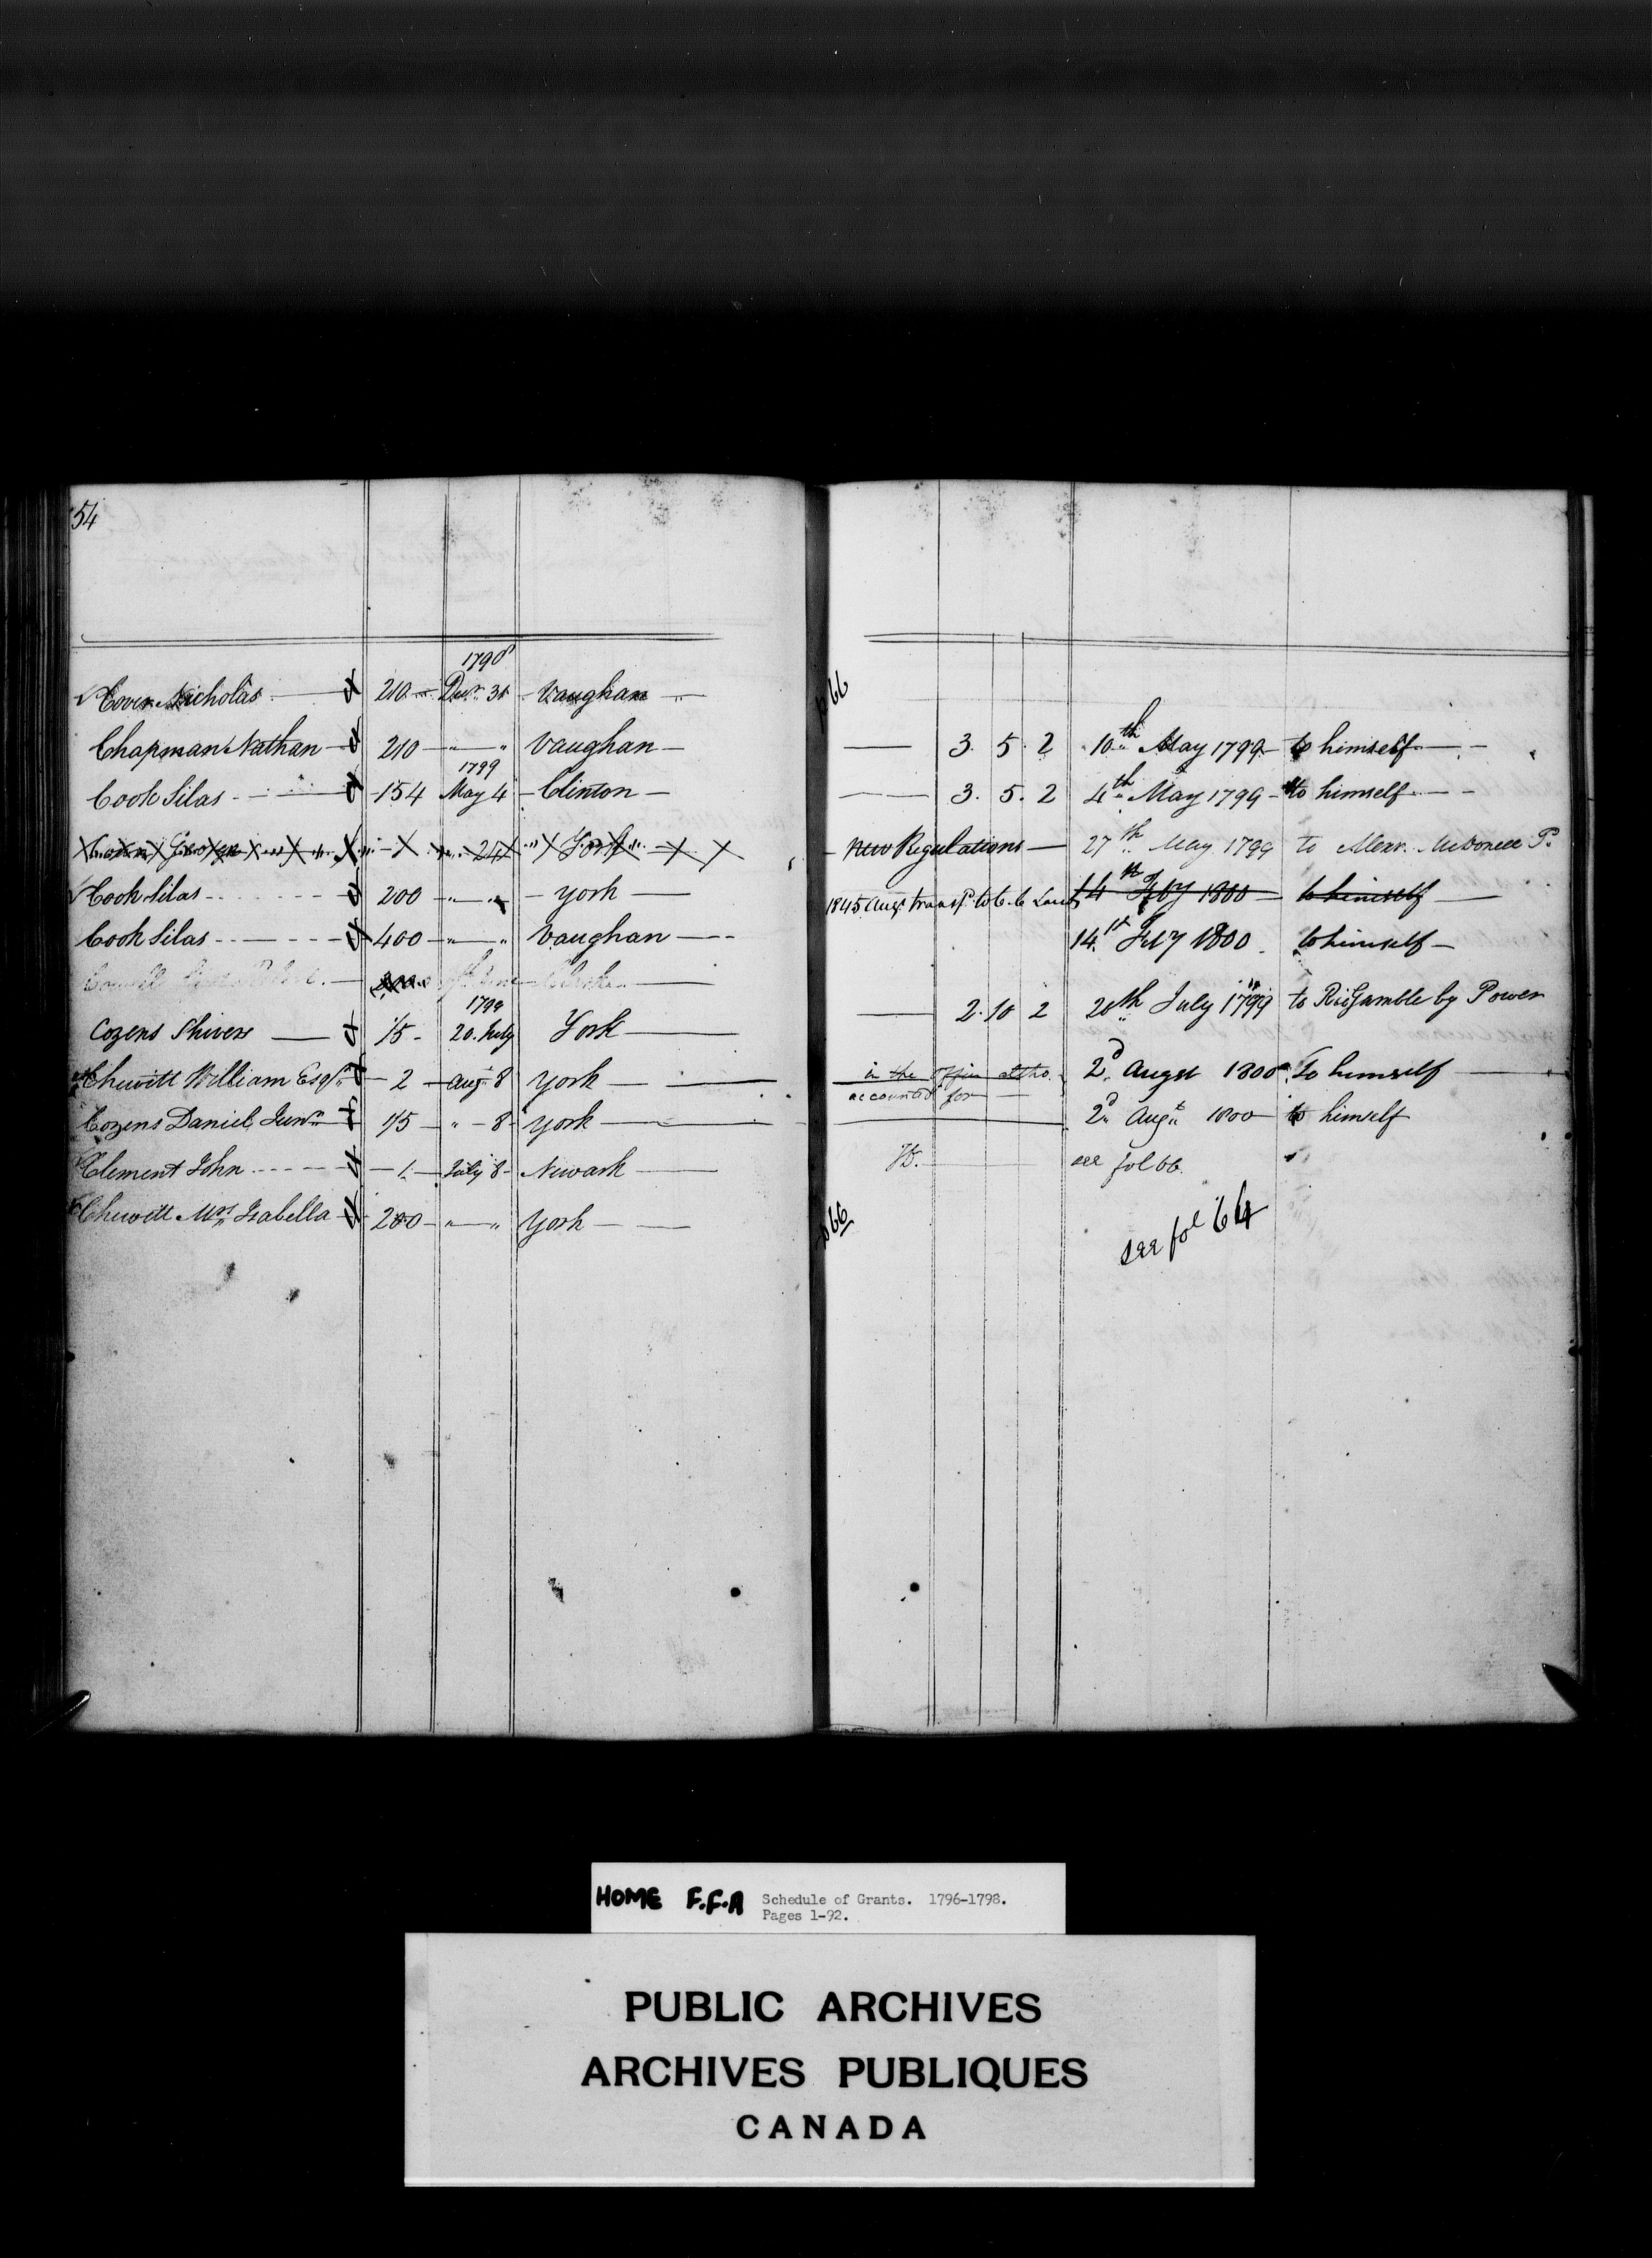 54
1798
Cover Nicholas 210 Decr. 31 Vaughan p 66
Chapman Nathan 210 " " Vaughan 3. 5. 2 10th May 1799 to himself
1799
Cook Silas 154 May 4 Clinton 3. 5. 2 4th May 1799 to himself
" 24 " York New Regulations 27th May 1799 to Alexr. McDonell P.
Cook Silas 200 " " York 1845 Augt transfd to C. C. Land 14th Feby 1800 to himself
Cook Silas 400 " " Vaughan 14th Feby 1800 to himself
1799
Cozens Shivers 1/5 20. July York 2. 10 2 20th July 1799 to Rid Gamble by Power
Chewitt William Esqr. 2 Augt 8 York in the Office 2d Augst 1800 To himself
accounted for
Cozens Daniel Junr. 1/5 " 8 York 2d Augt 1800 to himself
Clement John 1 July 8 Newark Do. see fol 66.
Chewitt Mrs Isabella 200 " " York p 66 see fol 64
HOME F.F.A Schedule of Grants. 1796-1798.
Pages 1-92.
PUBLIC ARCHIVES
ARCHIVES PUBLIQUES
CANADA